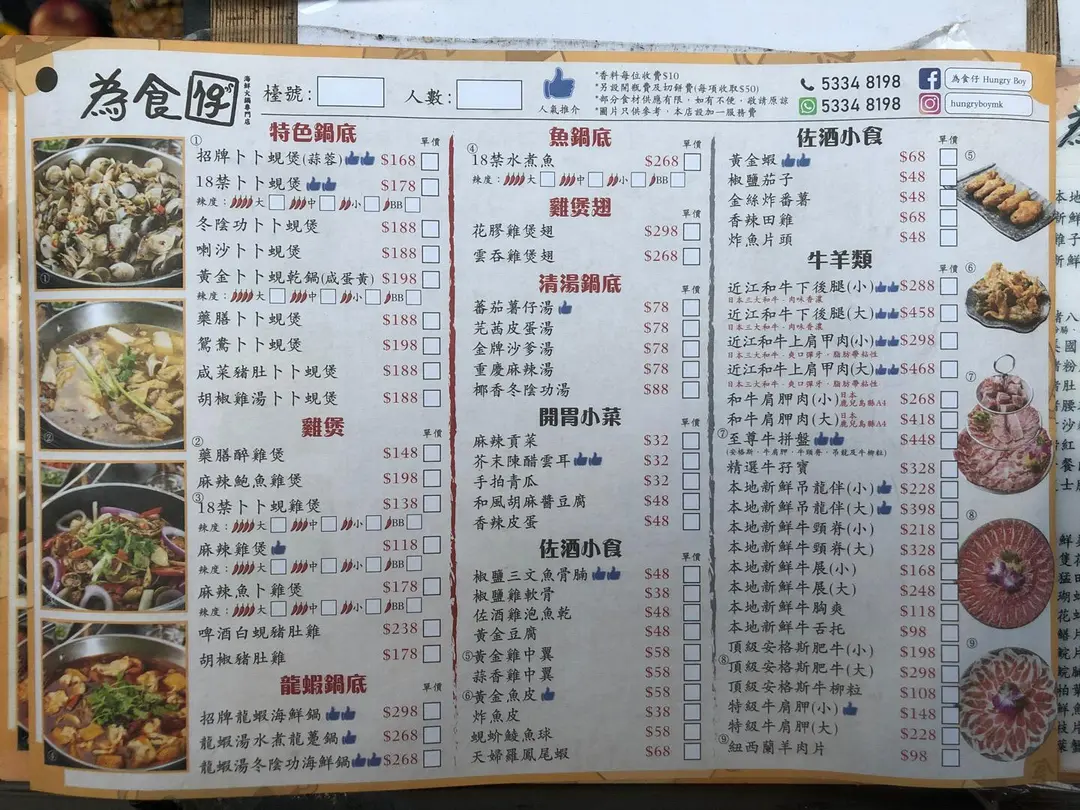 為食仔
海鮮火鍋專門店
檯號:
人數:
人氣推介
*香料每位收費$10
*另設開瓶費及切餅費(每項收取$50)
*部分食材供應有限,如有不便,敬請原諒
*圖片只供參考,本店設加一服務費
5334 8198
5334 8198
為食仔 Hungry Boy
hungryboymk
特色鍋底
單價
①
招牌卜卜蜆煲(蒜蓉) $168
18禁卜卜蜆煲 $178
辣度: 大 中 小 BB
冬陰功卜卜蜆煲 $188
喇沙卜卜蜆煲 $188
黃金卜卜蜆乾鍋(咸蛋黃) $198
辣度: 大 中 小 BB
藥膳卜卜蜆煲 $188
鴛鴦卜卜蜆煲 $198
咸菜豬肚卜卜蜆煲 $188
胡椒雞湯卜卜蜆煲 $188
雞煲
單價
②
藥膳醉雞煲 $148
麻辣鮑魚雞煲 $198
③
18禁卜卜蜆雞煲 $138
辣度: 大 中 小 BB
麻辣雞煲 $118
辣度: 大 中 小 BB
麻辣魚卜雞煲 $178
辣度: 大 中 小 BB
啤酒白蜆豬肚雞 $238
胡椒豬肚雞 $178
龍蝦鍋底
單價
招牌龍蝦海鮮鍋 $298
龍蝦湯水煮龍躉鍋 $268
龍蝦湯冬陰功海鮮鍋 $268
魚鍋底
單價
④
18禁水煮魚 $268
辣度: 大 中 小 BB
雞煲翅
單價
花膠雞煲翅 $298
雲吞雞煲翅 $268
清湯鍋底
蕃茄薯仔湯 $78
芫茜皮蛋湯 $78
金牌沙爹湯 $78
重慶麻辣湯 $78
椰香冬陰功湯 $88
開胃小菜
單價
麻辣貢菜 $32
芥末陳醋雲耳 $32
手拍青瓜 $32
和風胡麻醬豆腐 $48
香辣皮蛋 $48
佐酒小食
單價
椒鹽三文魚骨腩 $48
椒鹽雞軟骨 $38
佐酒雞泡魚乾 $48
黃金豆腐 $48
⑤黃金雞中翼 $58
蒜香雞中翼 $58
⑥黃金魚皮 $58
炸魚皮 $38
蜆蚧鯪魚球 $58
天婦羅鳳尾蝦 $68
佐酒小食
單價
黃金蝦 $68
椒鹽茄子 $48
金絲炸番薯 $48
香辣田雞 $68
炸魚片頭 $48
牛羊類
單價
近江和牛下後腿(小) $288
日本三大和牛,肉味香濃
近江和牛下後腿(大) $458
日本三大和牛,肉味香濃
近江和牛上肩甲肉(小) $298
日本三大和牛,爽口彈牙,脂肪帶粘性
近江和牛上肩甲肉(大) $468
日本三大和牛,爽口彈牙,脂肪帶粘性
和牛肩胛肉(小)日本鹿兒島縣A4 $268
和牛肩胛肉(大)日本鹿兒島縣A4 $418
⑦至尊牛拼盤 $448
(安格斯、牛肩胛、牛頸脊、吊龍及牛柳粒)
精選牛孖寶 $328
本地新鮮吊龍伴(小) $228
本地新鮮吊龍伴(大) $398
本地新鮮牛頸脊(小) $218
本地新鮮牛頸脊(大) $328
本地新鮮牛展(小) $168
本地新鮮牛展(大) $248
本地新鮮牛胸爽 $118
本地新鮮牛舌托 $98
頂級安格斯肥牛(小) $198
⑧頂級安格斯肥牛(大) $298
頂級安格斯牛柳粒 $108
特級牛肩胛(小) $148
特級牛肩胛(大) $228
⑨紐西蘭羊肉片 $98
①
②
③
⑤
⑥
⑦
⑧
⑨